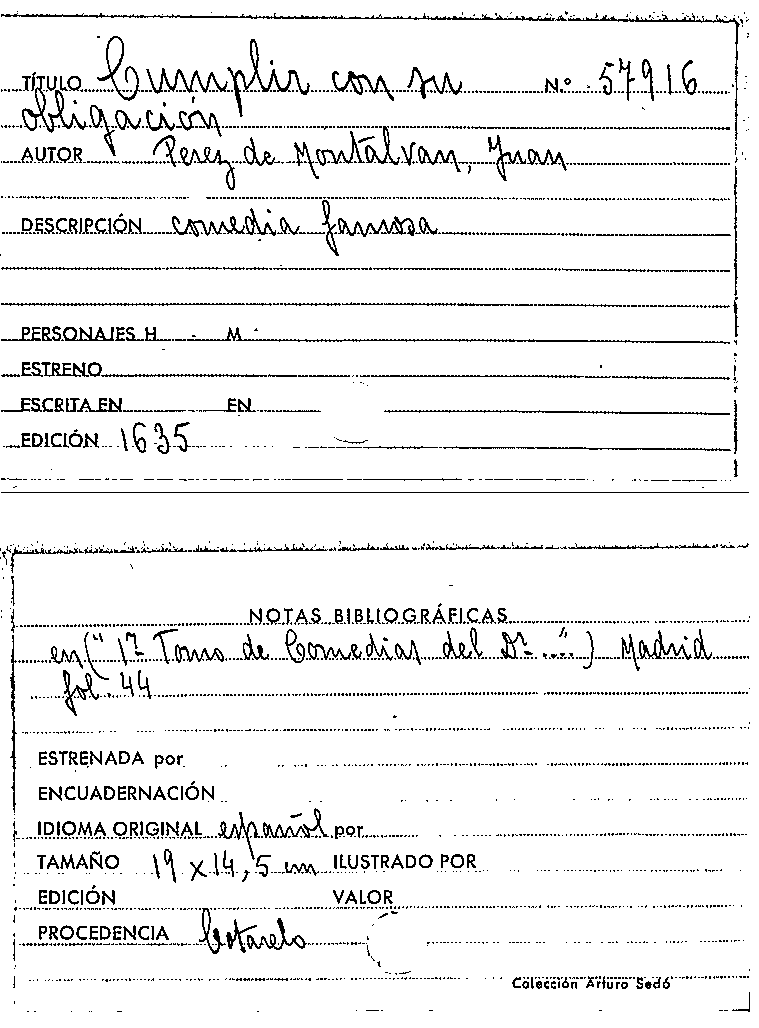 TÍTULO Cumplir con su Nº 57916
obligación
AUTOR Perez de Montalvan, Juan
DESCRIPCIÓN comedia famosa
PERSONAJES H M
ESTRENO
ESCRITA EN EN
EDICIÓN 1635
NOTAS BIBLIOGRÁFICAS
en ("1º Tomo de Comedias del Dr ...") Madrid
fol. 44
ESTRENADA por
ENCUADERNACIÓN
IDIOMA ORIGINAL español por
TAMAÑO 19 x 14,5 cm ILUSTRADO POR
EDICIÓN VALOR
PROCEDENCIA Cotarelo
Colección Arturo Sedó